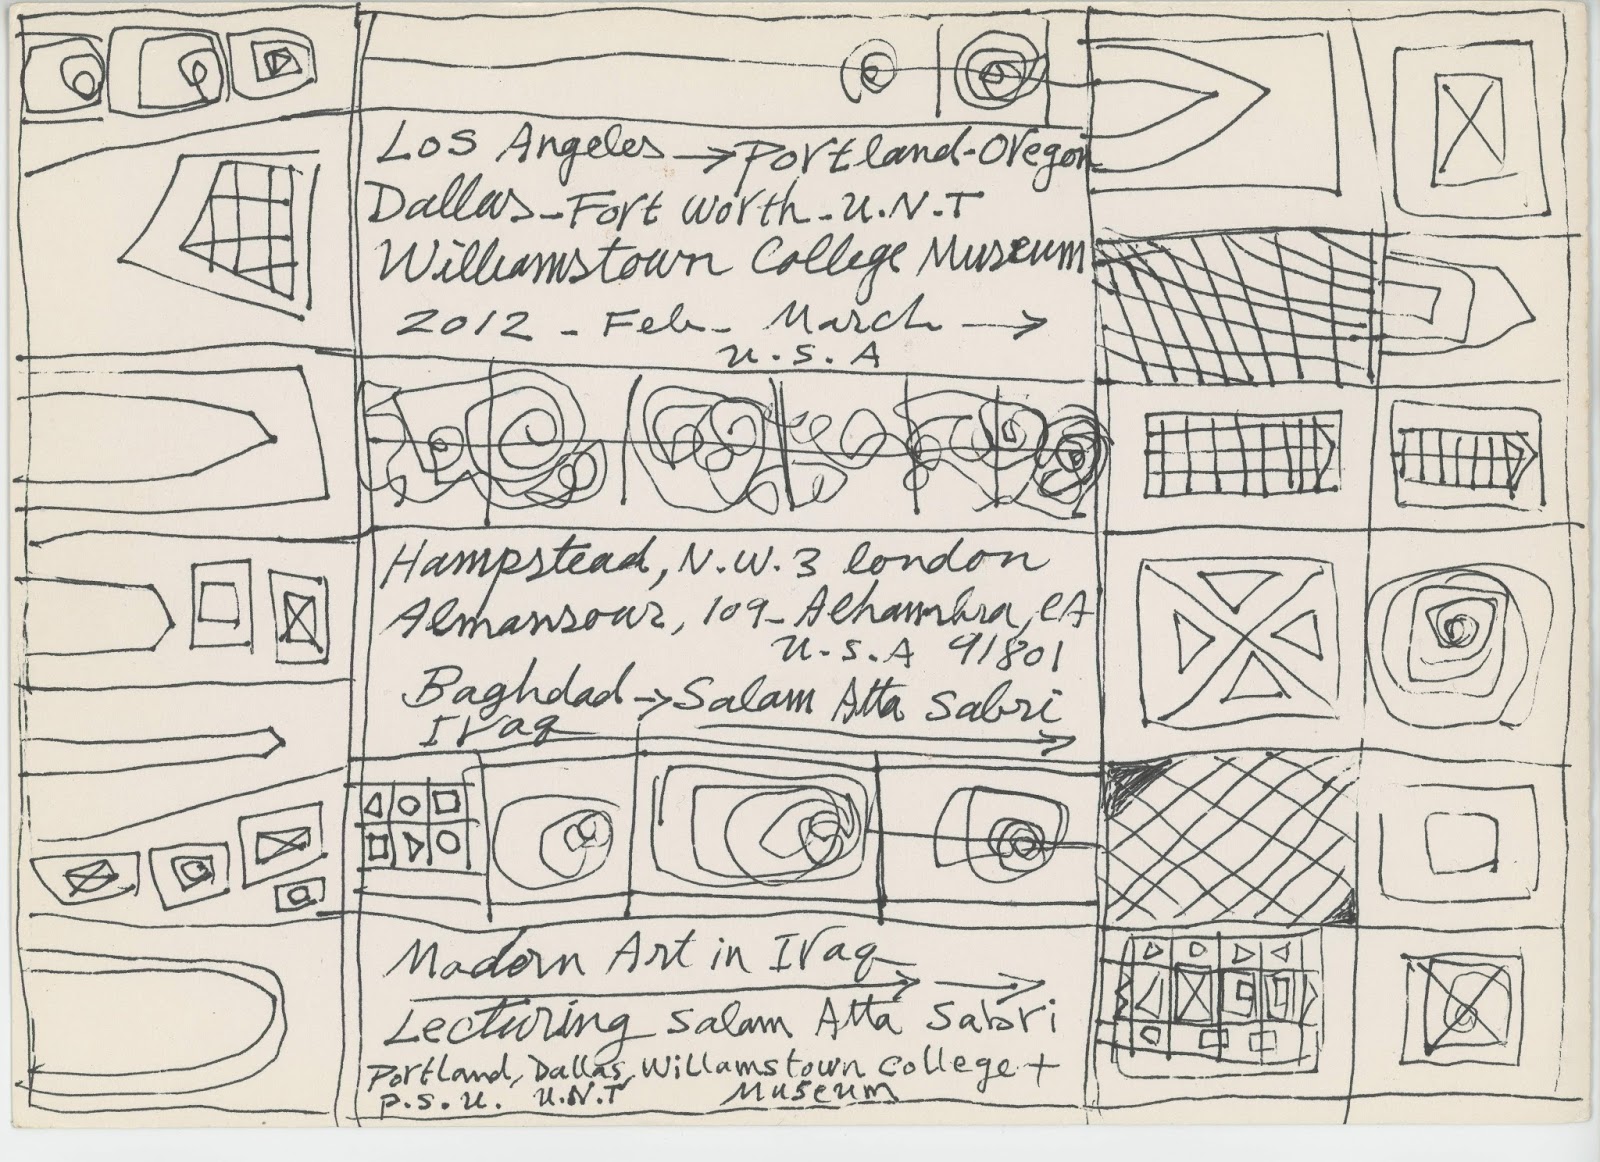 Los Angeles → Portland-Oregon
Dallas-Fort Worth-U.N.T
Williamstown College Museum
2012 - Feb - March →
U.S.A
Hampstead, N.W.3 London
Almansour, 109- Alhambra, CA
U.S.A 91801
Baghdad → Salam Atta Sabri
Iraq
Modern Art in Iraq
Lecturing Salam Atta Sabri
Portland, Dallas, Willamstown College +
P.S.U. U.N.T Museum